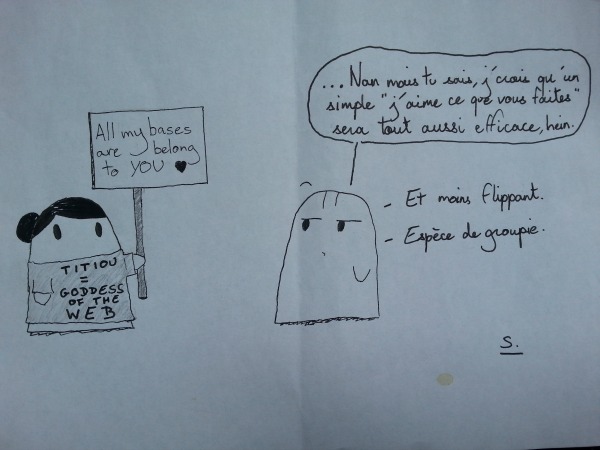 All my bases
are belong
to YOU ♥
TITIOU
=
GODDESS
OF THE
WEB
... Nan mais tu sais, j'crois qu'un
simple "j'aime ce que vous faites"
sera tout aussi efficace, hein.
- Et moins flippant.
- Espèce de groupie.
S.